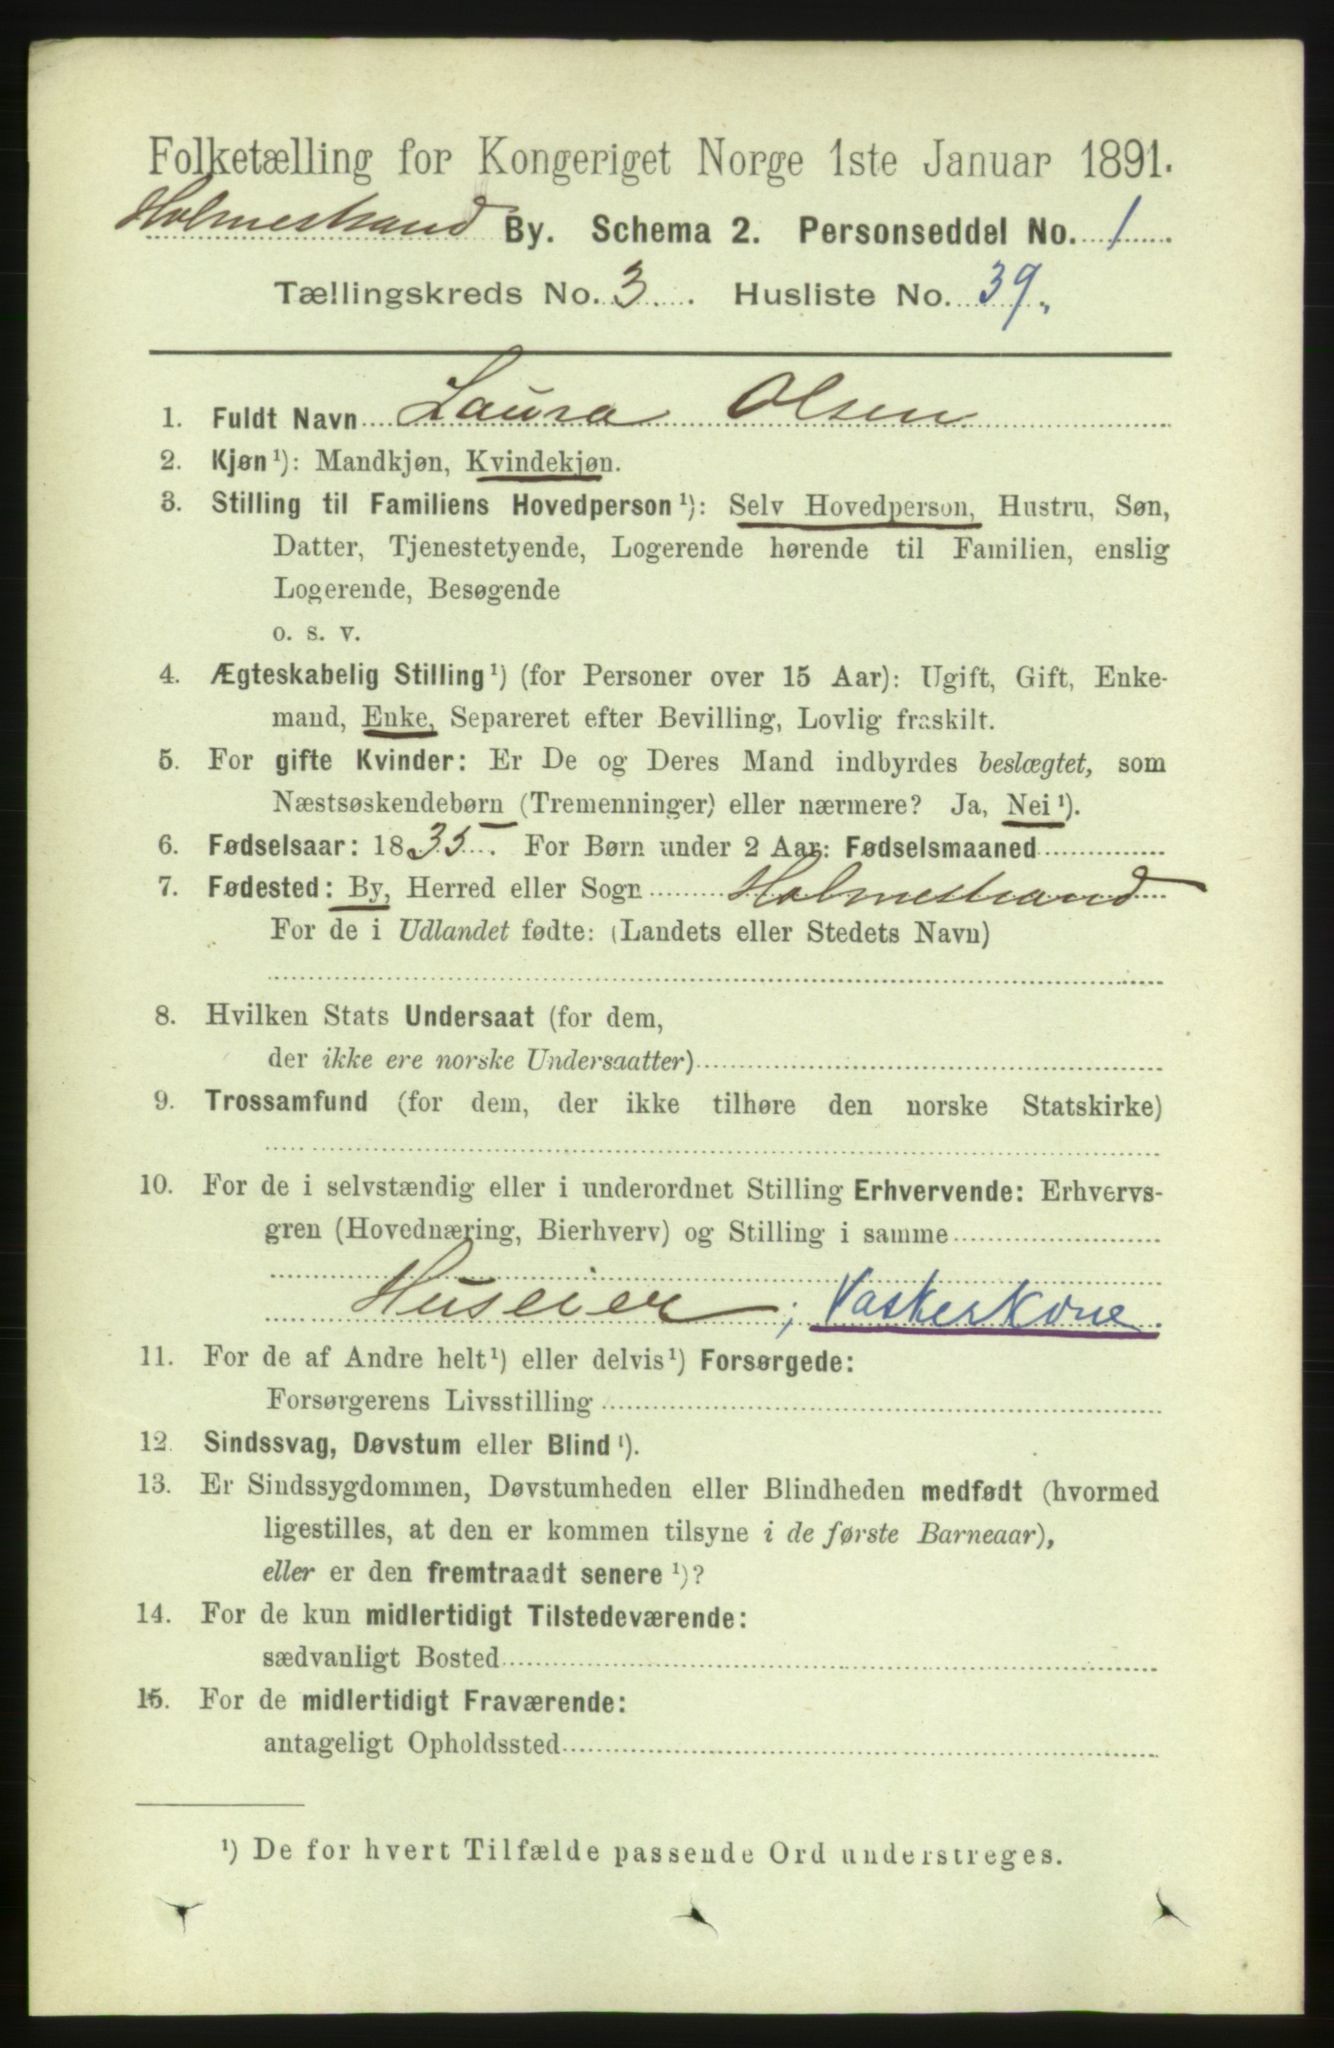 Folketælling for Kongeriget Norge 1ste Januar 1891.
Holmestrand By. Schema 2. Personseddel No. 1
Tællingskreds No. 3. Husliste No. 39.
1. Fuldt Navn Laura Olsen
2. Kjøn¹): Mandkjøn, Kvindekjøn.
3. Stilling til Familiens Hovedperson¹): Selv Hovedperson, Hustru, Søn,
Datter, Tjenestetyende, Logerende hørende til Familien, enslig
Logerende, Besøgende
o. s. v.
4. Ægteskabelig Stilling¹) (for Personer over 15 Aar): Ugift, Gift, Enke-
mand, Enke, Separeret efter Bevilling, Lovlig fraskilt.
5. For gifte Kvinder: Er De og Deres Mand indbyrdes beslægtet, som
Næstsøskendebørn (Tremenninger) eller nærmere? Ja, Nei¹).
6. Fødselsaar: 1835. For Børn under 2 Aar: Fødselsmaaned
7. Fødested: By, Herred eller Sogn Holmestrand
For de i Udlandet fødte: (Landets eller Stedets Navn)
8. Hvilken Stats Undersaat (for dem,
der ikke ere norske Undersaatter)
9. Trossamfund (for dem, der ikke tilhøre den norske Statskirke)
10. For de i selvstændig eller i underordnet Stilling Erhvervende: Erhvervs-
gren (Hovednæring, Bierhverv) og Stilling i samme
Huseier; Vaskerkone.
11. For de af Andre helt¹) eller delvis¹) Forsørgede:
Forsørgerens Livsstilling
12. Sindssvag, Døvstum eller Blind¹).
13. Er Sindssygdommen, Døvstumheden eller Blindheden medfødt (hvormed
ligestilles, at den er kommen tilsyne i de første Barneaar),
eller er den fremtraadt senere¹)?
14. For de kun midlertidigt Tilstedeværende:
sædvanligt Bosted
15. For de midlertidigt Fraværende:
antageligt Opholdssted
¹) De for hvert Tilfælde passende Ord understreges.